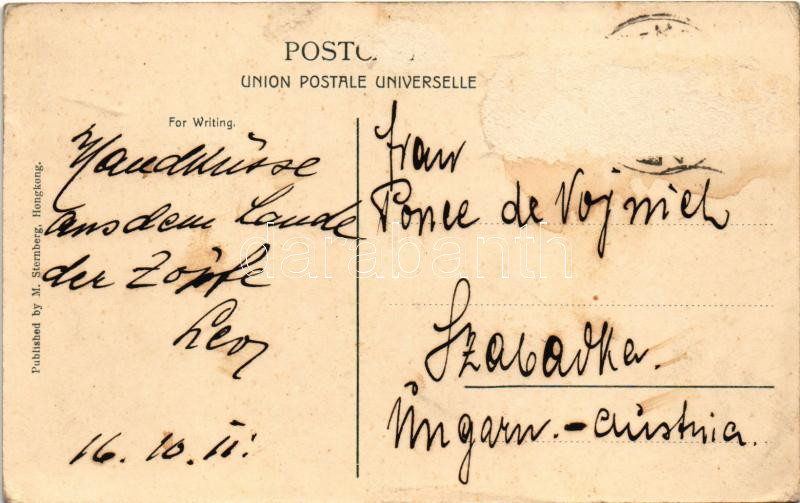 POSTC
UNION POSTALE UNIVERSELLE
For Writing.
Published by M. Sternberg, Hongkong.
Handküsse
aus dem Lande
der Zöpfe
Leo
16. 10. 11.
Frau
Ponce de Vojnich
Szabadka.
Ungarn.-Austria.
darabanth